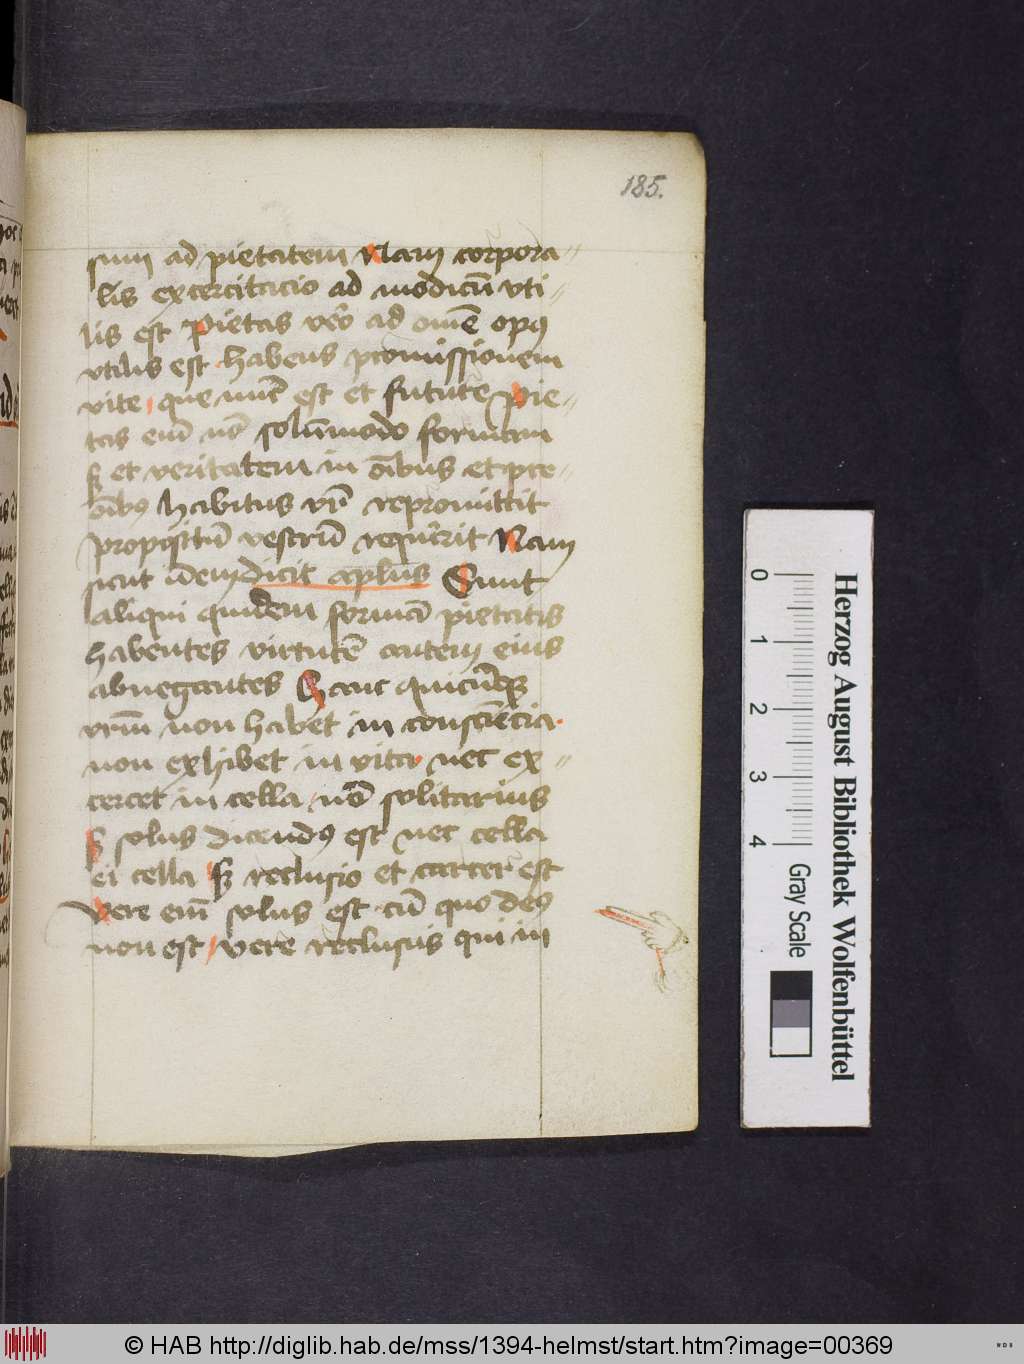 185.
sum ad pietatem Nam corpora-
lis excercitacio ad modicū vti-
lis est Pietas vo ad omē opꝰ
vtilis est habens promissionem
vite que nūc est et future Pie-
tas em nō solūmodo formam
sꝫ et veritatem in oībus et pre-
oībꝰ habitus vr̄ repromittit
propositū vestrū requirit Nam
sicut idem dicit aplus Sunt
aliqui quidem formā pietatis
habentes virtutē autem eius
abnegantes Hanc quicūqꝫ
vrm̄ non habet in consciencia
non exhibet in vita nec ex-
cercet in cella nō solitarius
sꝫ solus dicendꝰ est nec cella
ei cella sꝫ reclusio et carcer est
Vere em̄ solus est cū quo deꝰ
non est vere reclusus qui in
Herzog August Bibliothek Wolfenbüttel
0 1 2 3 4
Gray Scale
© HAB http://diglib.hab.de/mss/1394-helmst/start.htm?image=00369